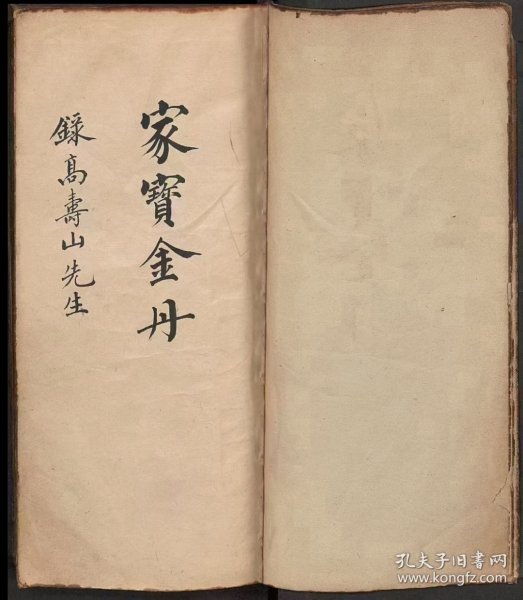 家寶金丹
錄髙壽山先生
孔夫子旧书网
www.kongfz.com